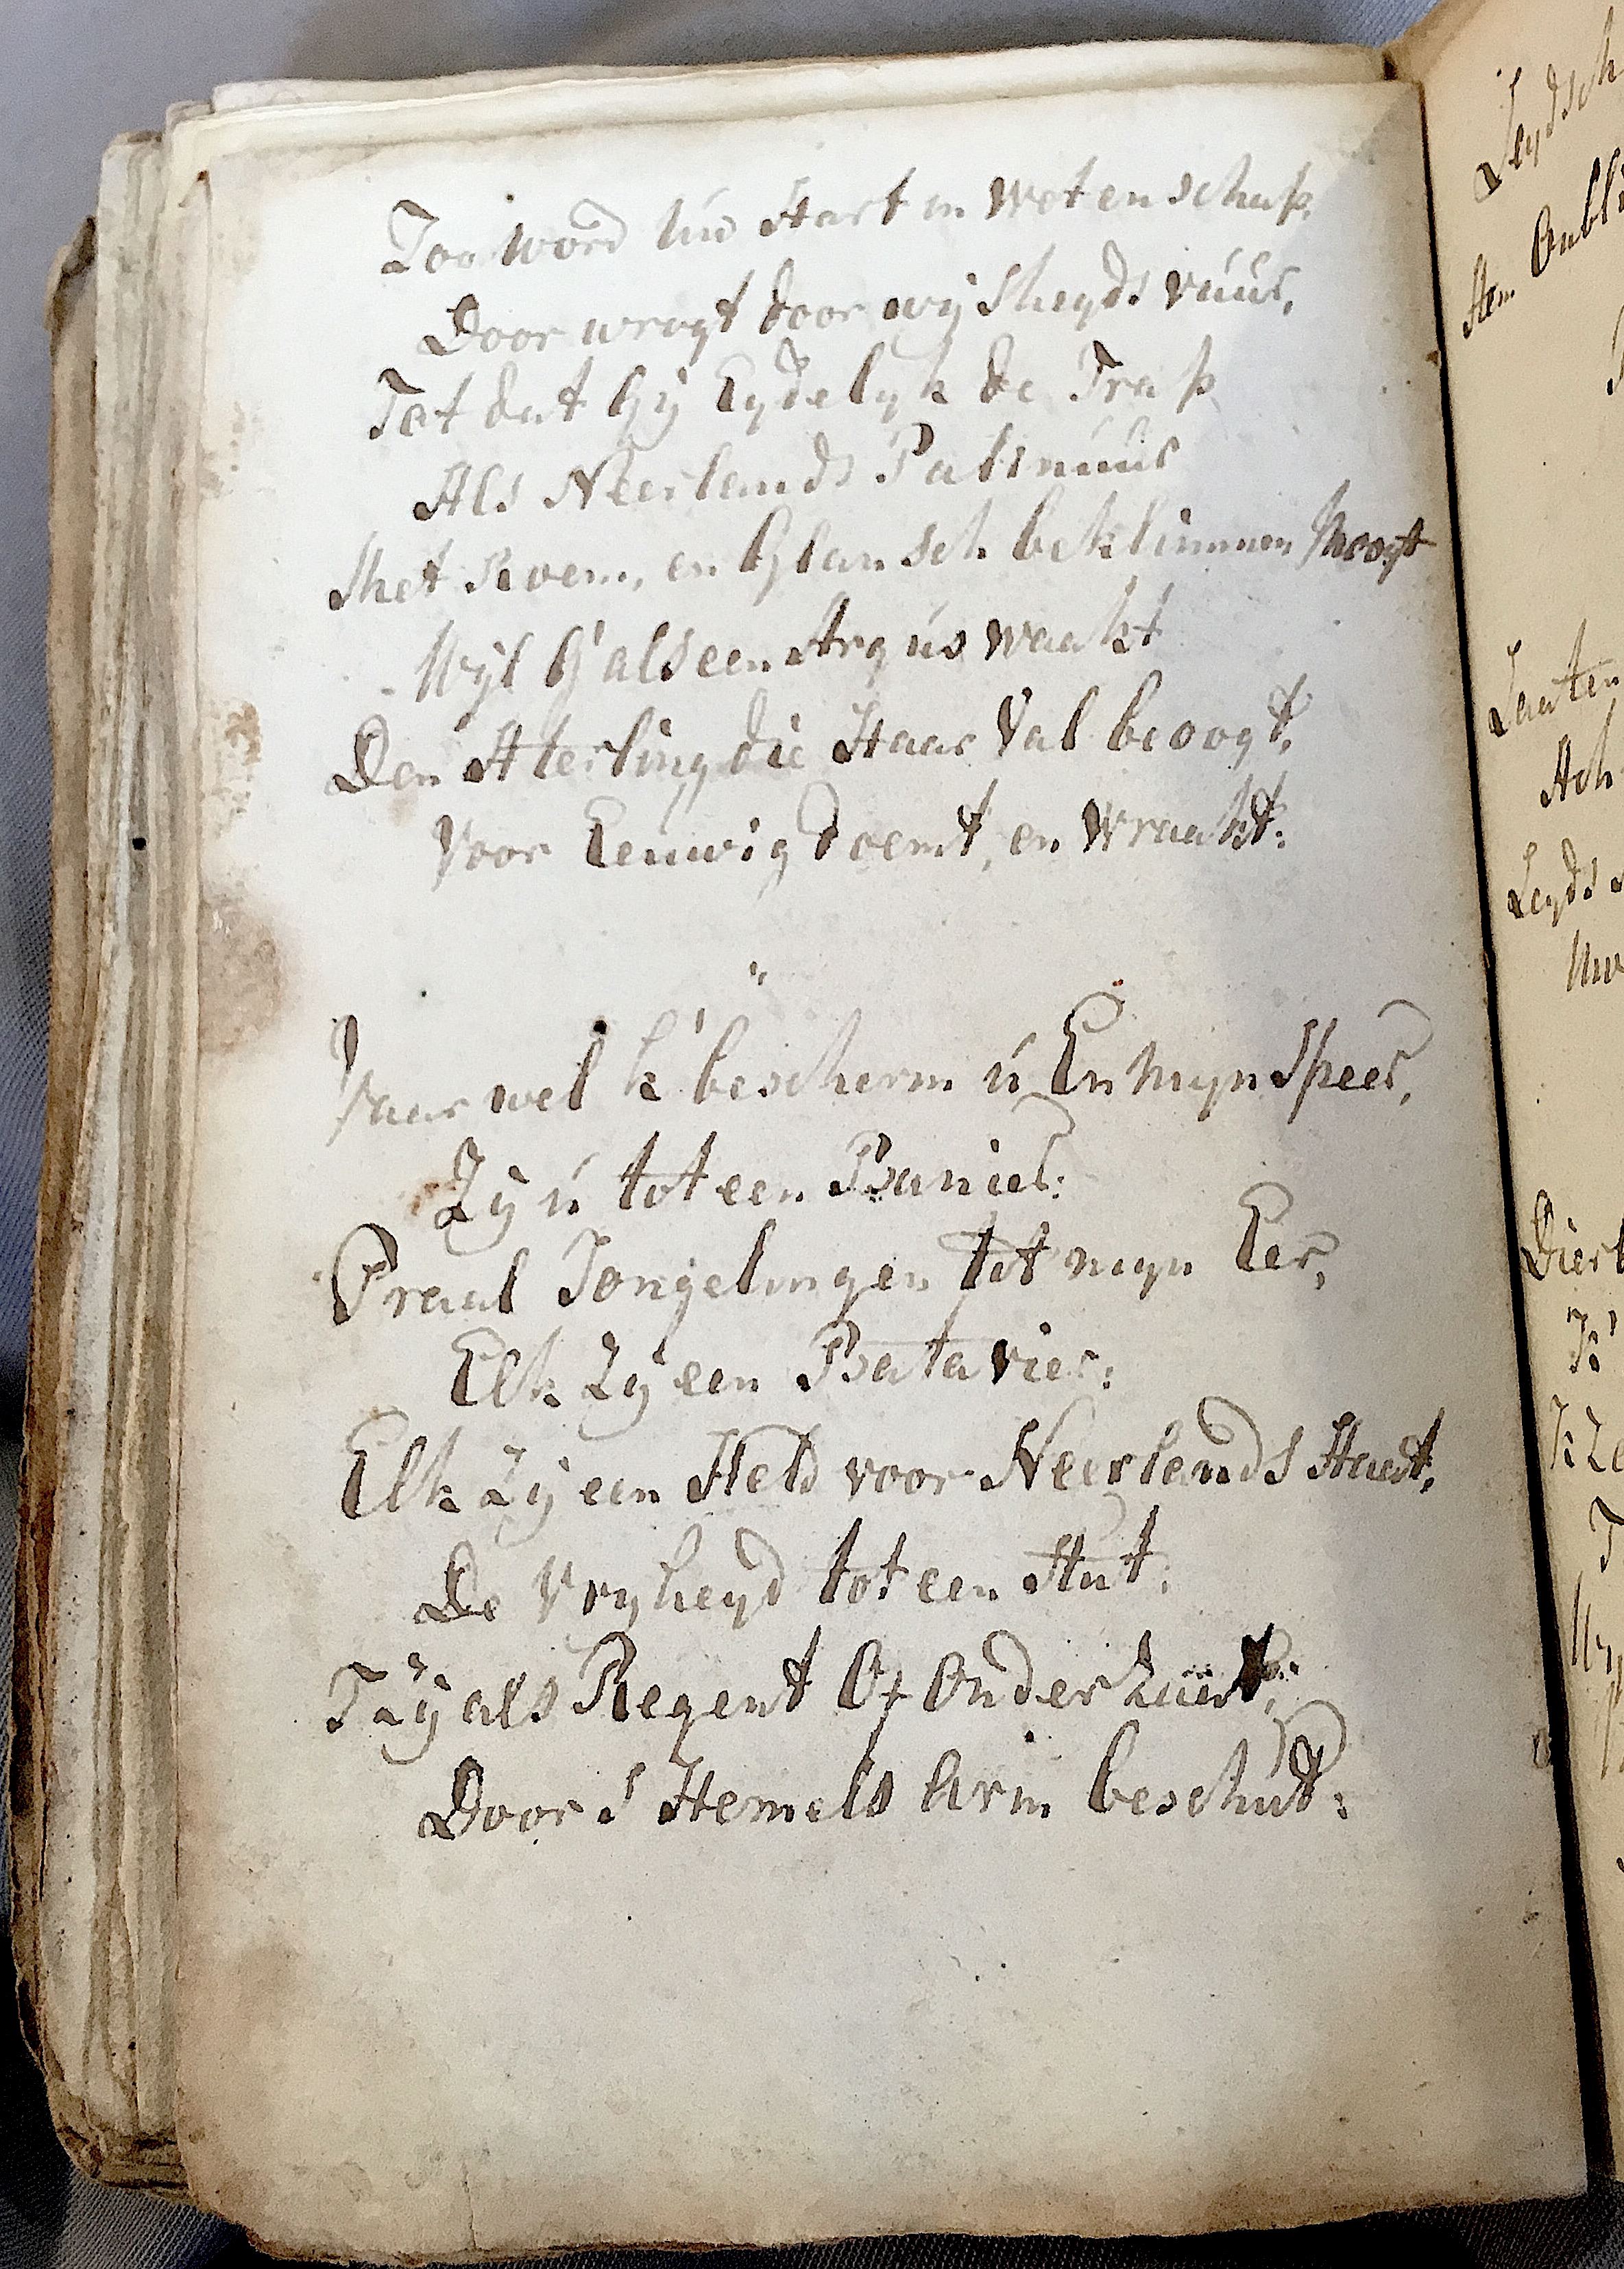 Zoo word úw Hart in Wetenschap,
Door wrogt door wysheyds vúúr,
Tot dat Gÿ Eydelyk de Trap
Als Neerlands Palinúúr
Met Roem, en Glansch beklimmen Moogt
Wyl G'als een Argús waakt
Den Aterling die Haar Val beoogt,
Voor Eeuwig Doemt, en Wraakt:
Vaar wel k'bescherm ú En Mijn Speer,
Zÿ ú tot een Banier:
Praal Jongelingen tot mijn Eer,
Elk Zÿ een Batavier:
Elk Zÿ een Held voor Neerlands Staat,
De Vryheyd tot een Stut:
T Zÿ als Regent Of Onderzaat,
Door S Hemels Arm beschút:
Leydsch
Hem
Lauten
Ach
Leyds
Diert
K'
K Ze